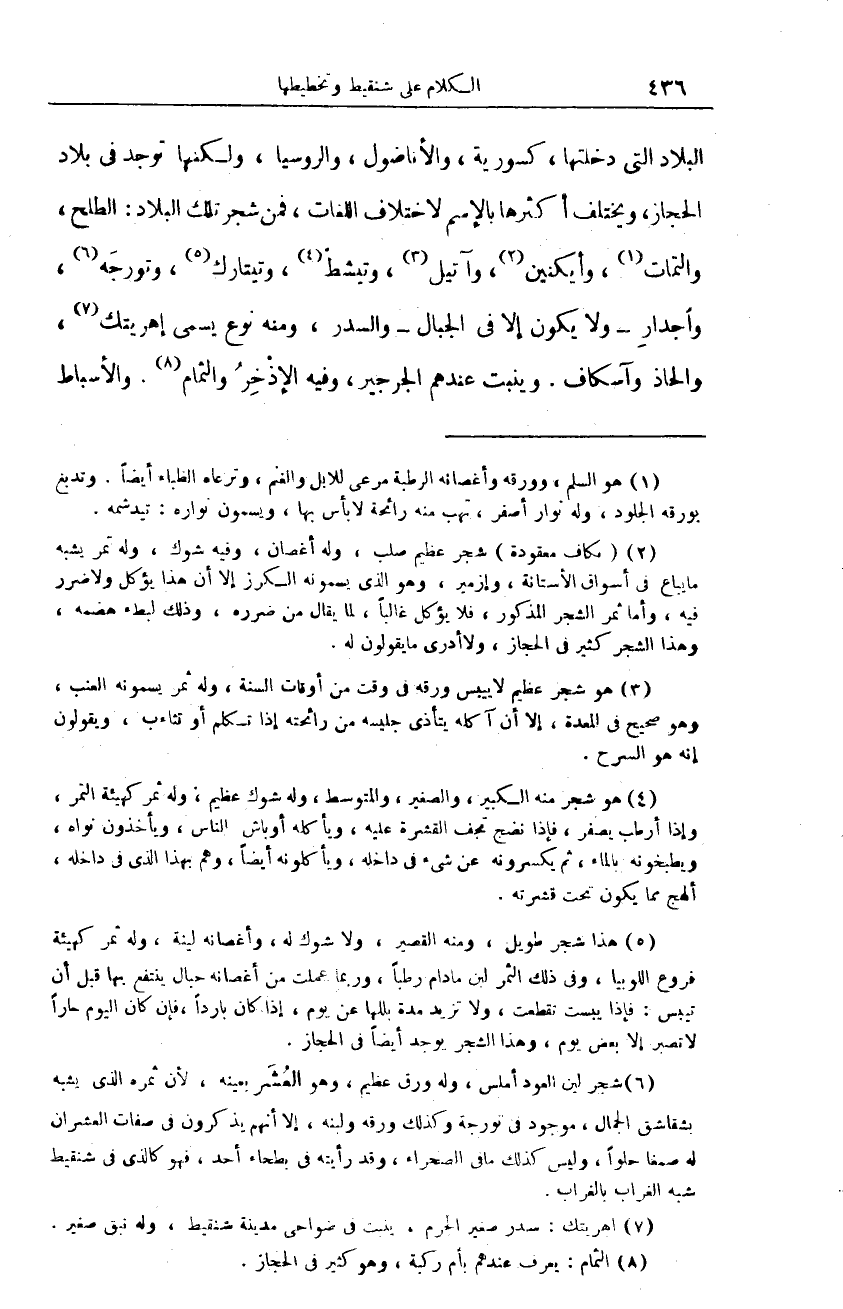 ٤٣٦ الكلام على شنقيط وتخطيطها
البلاد التى دخلتها ، كسورية ، والأناضول ، والروسيا ، ولكنها توجد فى بلاد
الحجاز ، ويختلف أكثرها بالإسم لاختلاف اللغات ، فمن شجر تلك البلاد : الطلح ،
والتمات(١) ، وأيكنين(٢) ، وآتيل(٣) ، وتيشط(٤) ، وتيتارك(٥) ، وتورجَه(٦) ،
وأجدارِ ـ ولا يكون إلا فى الجبال ـ والسدر ، ومنه نوع يسمى إهريتك(٧) ،
والحاذ وآسكاف . وينبت عندهم الجرجير ، وفيه الإذْخِرُ والثمام(٨) . والأسباط
(١) هو السلم ، وورقه وأغصانه الرطبة مرعى للابل والغنم ، وترعاه الظباء أيضاً . وتدبغ
بورقه الجلود ، وله نوار أصفر ، تهب منه رائحة لابأس بها ، ويسمون نواره : تيدشمه .
(٢) ( مكاف معقودة ) شجر عظيم صلب ، وله أغصان ، وفيه شوك ، وله ثمر يشبه
مايباع فى أسواق الأستانة ، وإزمير ، وهو الذى يسمونه الكرز إلا أن هذا يؤكل ولاضرر
فيه ، وأما ثمر الشجر المذكور ، فلا يؤكل غالباً ، لما يقال من ضرره ، وذلك لبطء هضمه ،
وهذا الشجر كثير فى الحجاز ، ولاأدرى مايقولون له .
(٣) هو شجر عظيم لاييبس ورقه فى وقت من أوقات السنة ، وله ثمر يسمونه العنب ،
وهو صحيح فى المعدة ، إلا أن آكله يتأذى جليسه من رائحته إذا تكلم أو تثاءب ، ويقولون
إنه هو السرح .
(٤) هو شجر منه الكبير ، والصغير ، والمتوسط ، وله شوك عظيم ، وله ثمر كهيئة التمر ،
وإذا أرطب يصفر ، فإذا نضج تجف القشرة عليه ، ويأكله أوباش الناس ، ويأخذون نواه ،
ويطبخونه بالماء ، ثم يكسرونه عن شىء فى داخله ، ويأكلونه أيضاً ، وهم بهذا الذى فى داخله ،
ألهج مما يكون تحت قشرته .
(٥) هذا شجر طويل ، ومنه القصير ، ولا شوك له ، وأغصانه لينة ، وله ثمر كهيئة
فروع اللوبيا ، وفى ذلك الثمر لبن مادام رطباً ، وربما عملت من أغصانه حبال ينتفع بها قبل أن
تيبس : فإذا يبست تقطعت ، ولا تزيد مدة بللها عن يوم ، إذا كان بارداً ، فإن كان اليوم حاراً
لاتصبر إلا بعض يوم ، وهذا الشجر يوجد أيضاً فى الحجاز .
(٦) شجر لين العود أملس ، وله ورق عظيم ، وهو العُشَر بعينه ، لأن ثمره الذى يشبه
بشقاشق الجمال ، موجود فى تورجة وكذلك ورقه ولبنه ، إلا أنهم يذكرون فى صفات العشران
له صمغا حلواً ، وليس كذلك مافى الصحراء ، وقد رأيته فى بطحاء أحد ، فهو كالذى فى شنقيط
شبه الغراب بالغراب .
(٧) اهريتك : سدر صغير الجرم ، ينبت فى ضواحى مدينة شنقيط ، وله نبق صغير .
(٨) الثمام : يعرف عندهم بأم ركبة ، وهو كثير فى الحجاز .